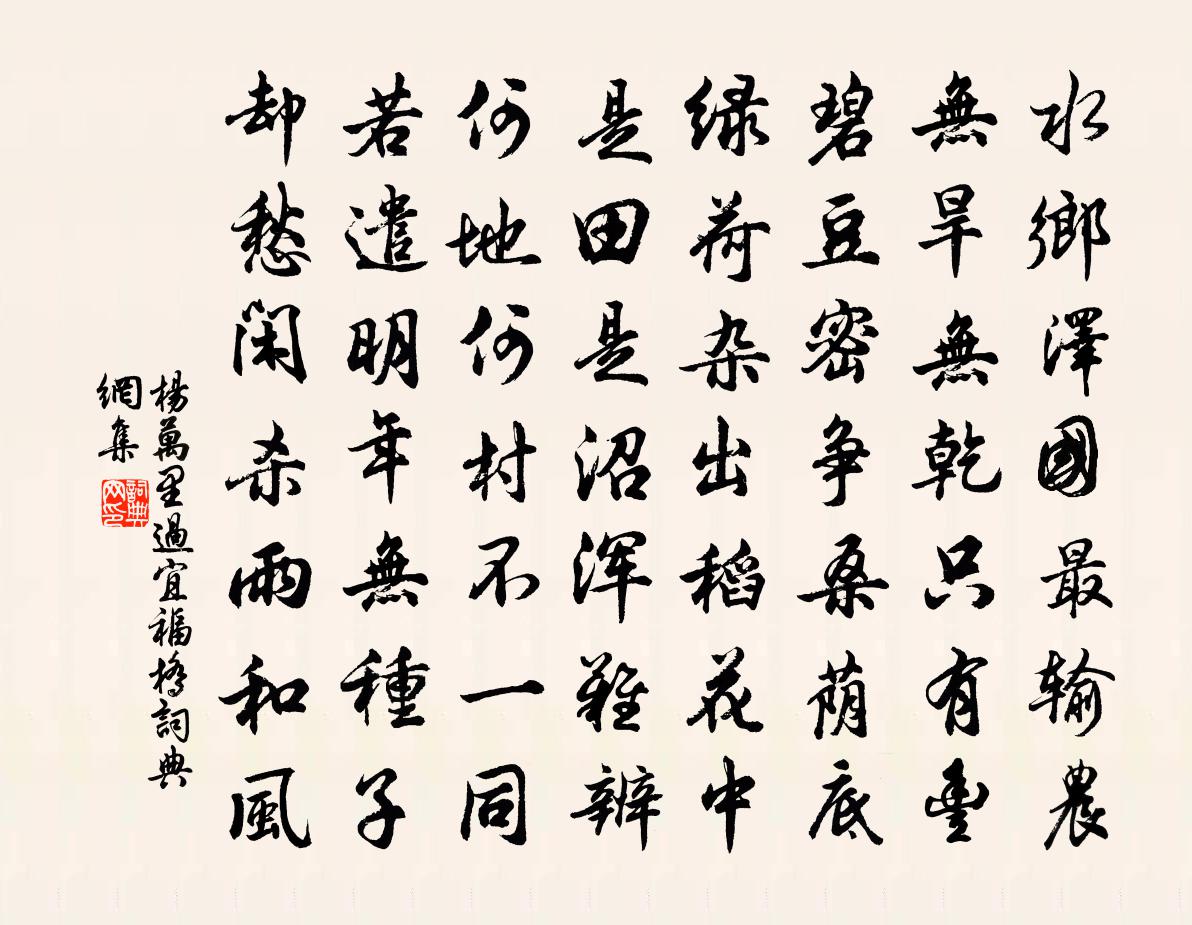 水鄉澤國最输農
無旱無乾只有豊
碧豆密争桑荫底
绿荷杂出稻花中
是田是沼浑難辨
何地何村不一同
若遣明年無種子
却愁闲杀雨和風
楊萬里過宜福橋詞典
網集
詞典
网印